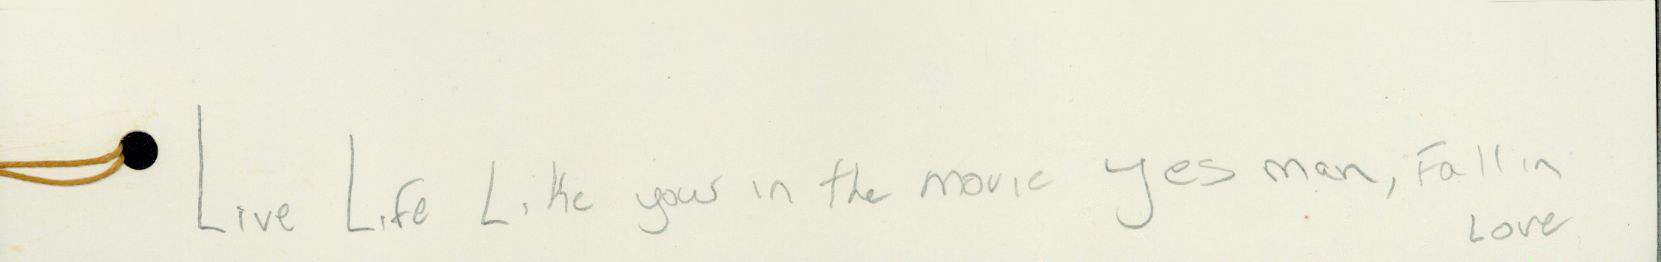 Live Life Like your in the movie yes man, Fall in
Love